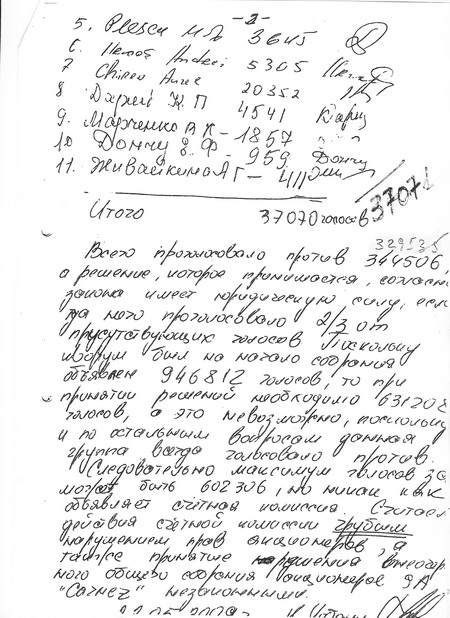 -2-
5. Plesca 3645
6. Nemos Andrei 5305
7 Chirev 20352
8 Н П 4541
9. Марченко В К - 1857
10 Дончу Ф - 959 Дончу
11. Живайкина А Г - 411
Итого 37070 голосов 37071
329535
Всего проголосовало против 344506,
а решение, которое принимается, согласно
закона имеет юридическую силу, если
за него проголосовало 2/3 от
присутствующих голосов Поскольку
кворум был на начало собрания
объявлен 946812 голосов, то при
принятии решений необходимо 631208
голосов, а это невозможно, поскольку
и по остальным вопросам данная
группа всегда голосовала против.
Следовательно максимум голосов за
может быть 602306, но никак как
объявляет счётная комиссия. Считаем
действия счётной комиссии грубым
нарушением прав акционеров, а
также принятие решения
ного общего собрания акционеров
незаконными.